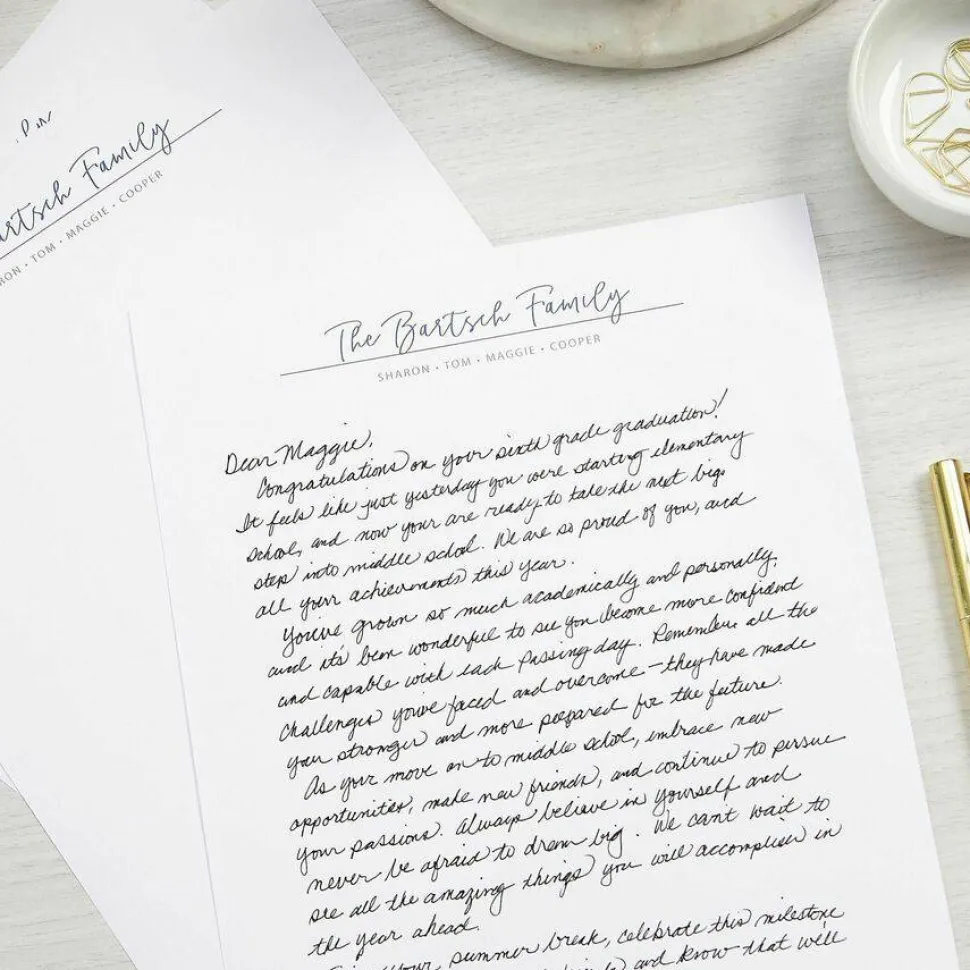 Bartsch Family
RON • TOM • MAGGIE • COOPER
The Bartsch Family
SHARON • TOM • MAGGIE • COOPER
Dear Maggie,
Congratulations on your sixth grade graduation!
It feels like just yesterday you were starting elementary
school, and now your are ready to take the next big
step into middle school. We are so proud of you, and
all your achievements this year.
You've grown so much academically and personally,
and it's been wonderful to see you become more confident
and capable with each passing day. Remember all the
challenges you've faced and overcome – they have made
your stronger and more prepared for the future.
As your move on to middle school, embrace new
opportunities, make new friends, and continue to pursue
your passions. Always believe in yourself and
never be afraid to dream big. We can't wait to
see all the amazing things you will accomplish in
the year ahead.
your summer break, celebrate this milestone
and know that we'll